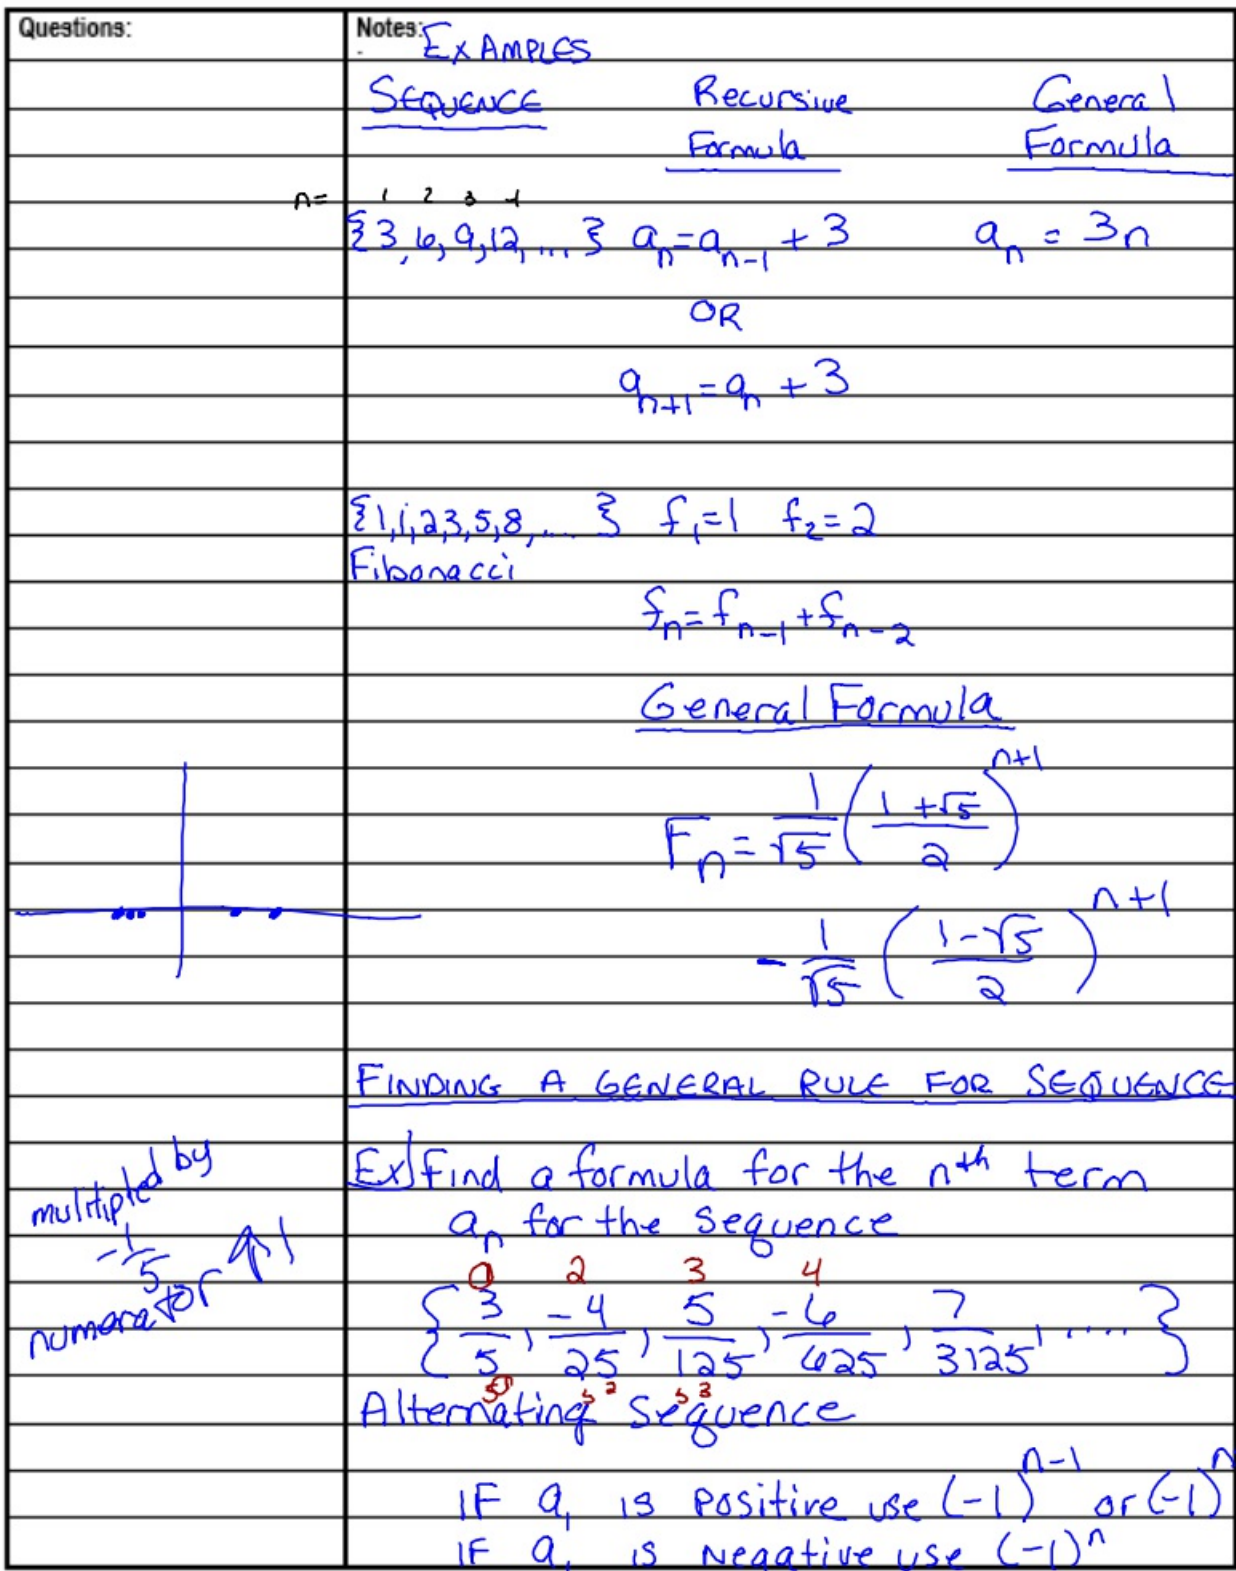 Questions:
Notes:
EXAMPLES
SEQUENCE Recursive Formula General Formula
n= 1 2 3 4
{3, 6, 9, 12, ... } aₙ = aₙ₋₁ + 3 aₙ = 3n
OR
aₙ₊₁ = aₙ + 3
{1, 1, 2, 3, 5, 8, ... } f₁ = 1 f₂ = 2
Fibonacci
fₙ = fₙ₋₁ + fₙ₋₂
General Formula
Fₙ = 1/√5 ((1 + √5)/2)ⁿ⁺¹
- 1/√5 ((1 - √5)/2)ⁿ⁺¹
FINDING A GENERAL RULE FOR SEQUENCE
multipled by
-1/5
numorator ↑ 1
Ex) Find a formula for the nᵗʰ term
aₙ for the sequence
2 3 4
{3/5, -4/25, 5/125, -6/625, 7/3125, ..... }
5² 5³
Alternating Sequence
IF a₁ is positive use (-1)ⁿ⁻¹ or (-1)ⁿ
IF a₁ is Negative use (-1)ⁿ